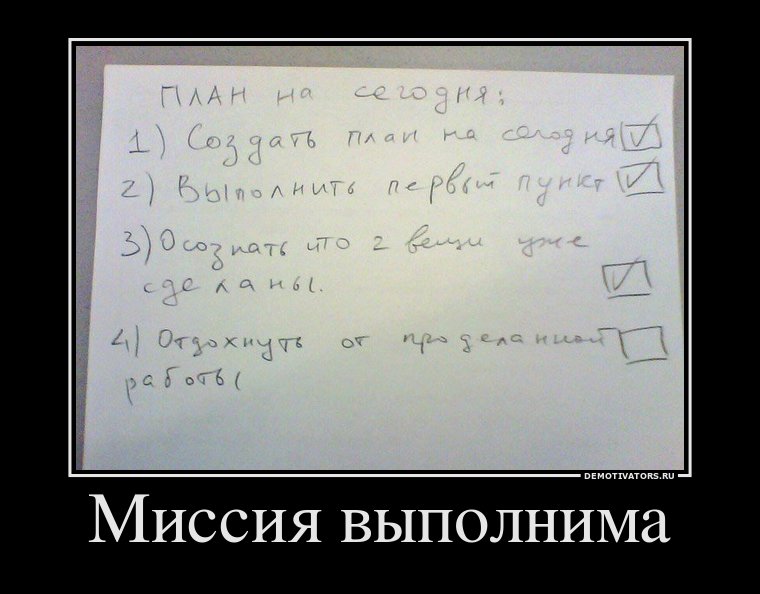 ПЛАН на сегодня:
1) Создать план на сегодня
2) Выполнить первый пункт
3) Осознать что 2 вещи уже
сделаны.
4) Отдохнуть от проделанной
работы
DEMOTIVATORS.RU
Миссия выполнима